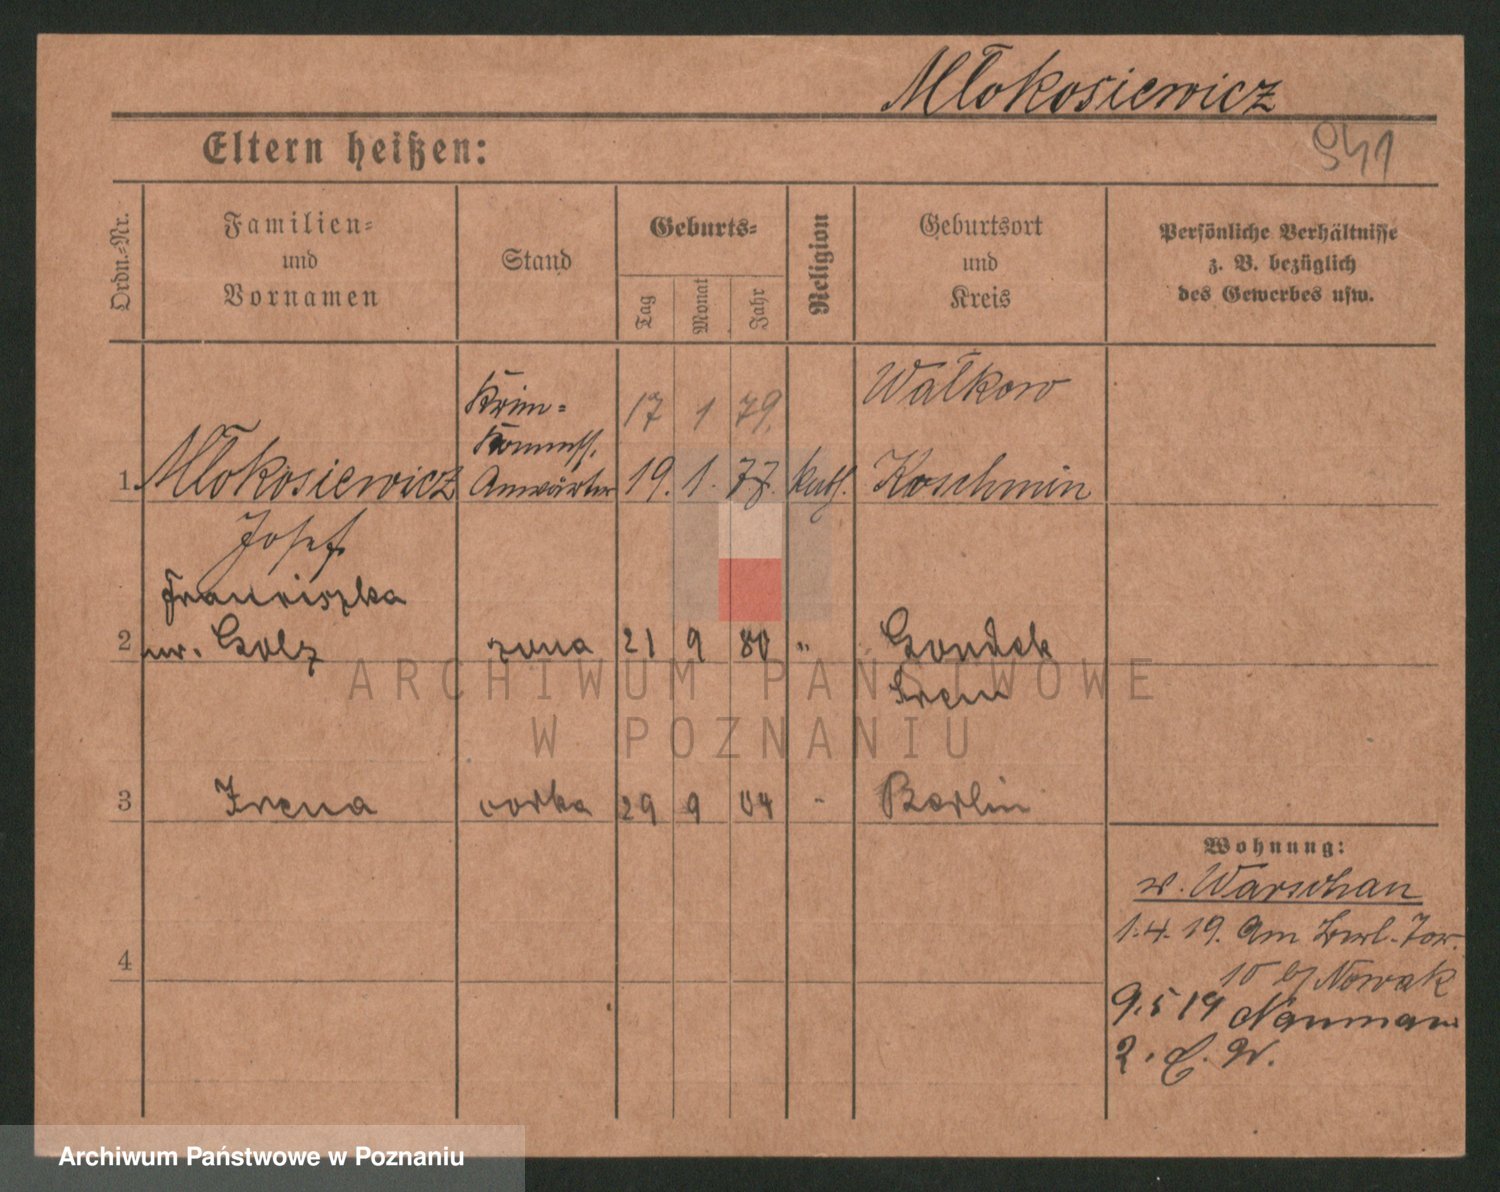 Młokosiewicz
941
Eltern heißen:
Ordn.-Nr.
Familien-
und
Vornamen
Stand
Geburts-
Tag
Monat
Jahr
Religion
Geburtsort
und
Kreis
Persönliche Verhältnisse
z. B. bezüglich
des Gewerbes usw.
Krim-
Kommiss.
17 1 79.
Wałkow
1 Młokosiewicz Anwärter 19. 1. 77. kath. Koschmin
Josef
Franciszka
2 ur. Golz żona 21 9 80 " Gondek
Srem
3 Irena córka 29 9 04 " Berlin
4
Wohnung:
w. Warschau
1.4.19. Am Berl. Tor.
10 b/ Nowak
9.5 19 Naumann
2. E. W.
ARCHIWUM PAŃSTWOWE
W POZNANIU
Archiwum Państwowe w Poznaniu